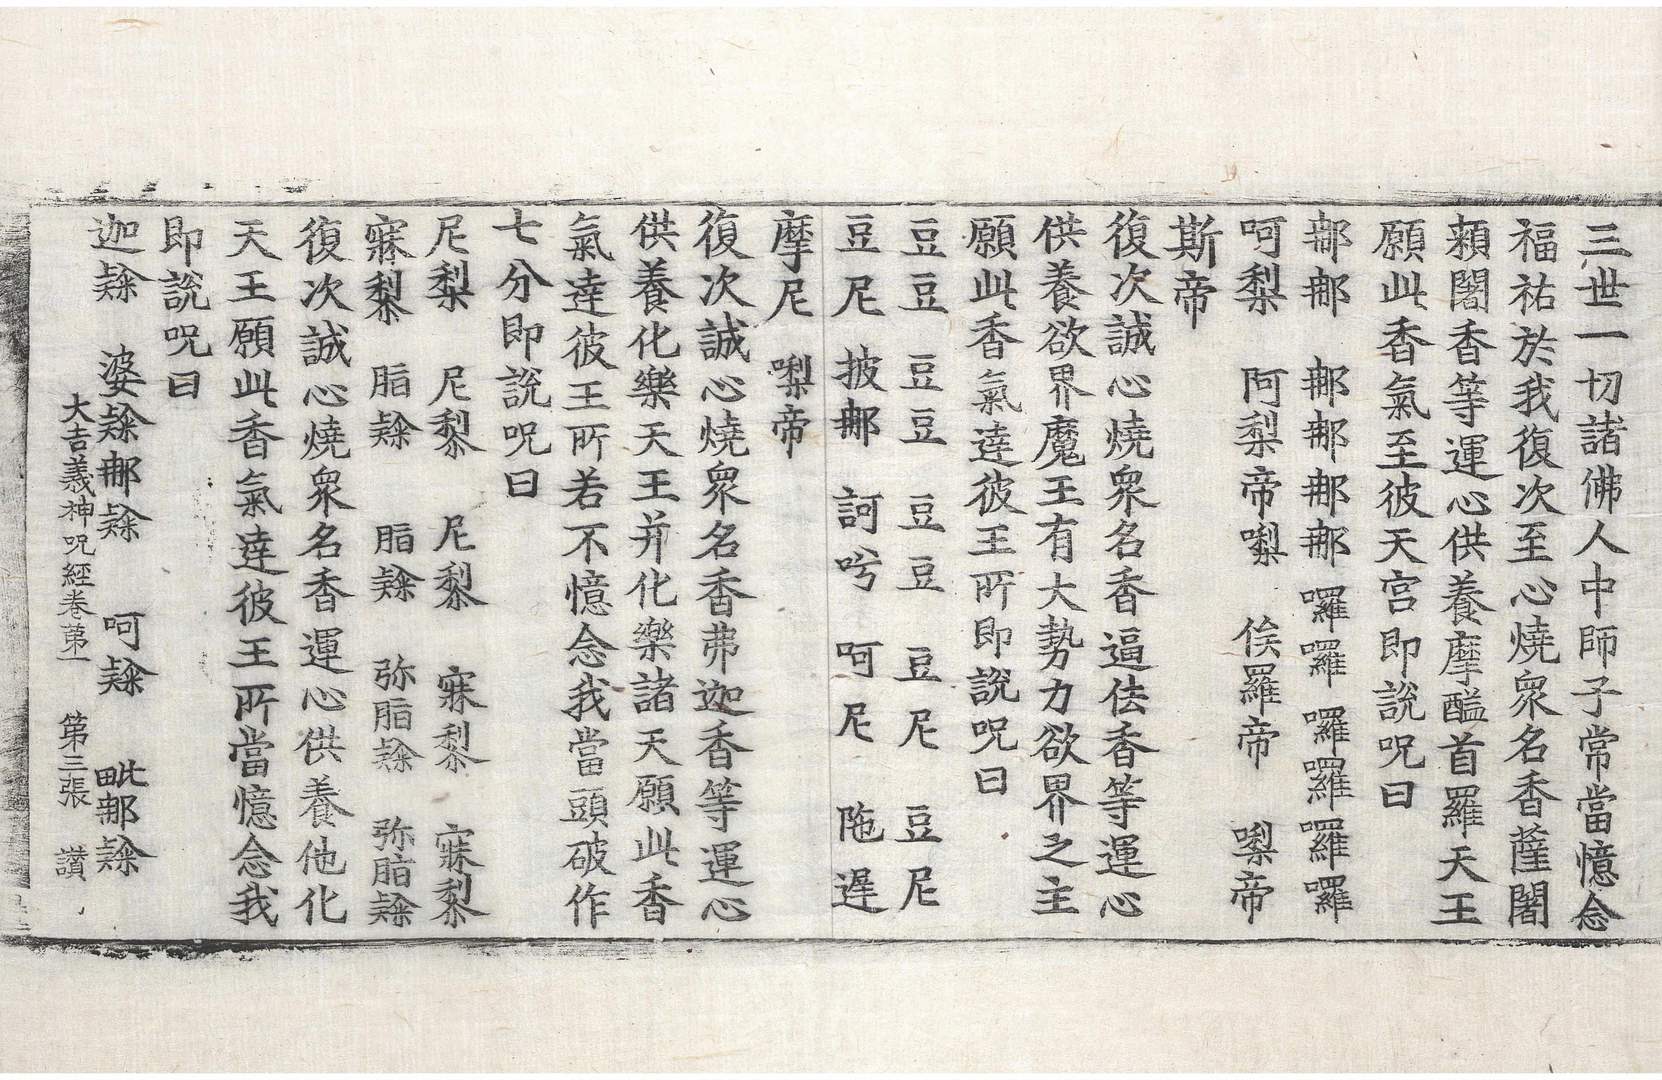 三世一切諸佛人中師子常當憶念
福祐於我復次至心燒衆名香薩闍
頼闍香等運心供養摩醯首羅天王
願此香氣至彼天宮即說呪曰
那那 那那那那 囉囉囉囉囉囉
呵梨 阿梨帝㘑 俟羅帝 㘑帝
斯帝
復次誠心燒衆名香逼佉香等運心
供養欲界魔王有大勢力欲界之主
願此香氣達彼王所即說呪曰
豆豆 豆豆 豆豆 豆尼 豆尼
豆尼 披那 訶兮 呵尼 陁遲
摩尼 㘑帝
復次誠心燒衆名香弗迦香等運心
供養化樂天王并化樂諸天願此香
氣達彼王所若不憶念我當頭破作
七分即說呪曰
尼梨 尼黎 尼黎 寐黎 寐黎
寐黎 脂𨲠 脂𨲠 弥脂𨲠 弥脂𨲠
復次誠心燒衆名香運心供養他化
天王願此香氣達彼王所當憶念我
即說呪曰
迦𨲠 婆𨲠那𨲠 呵𨲠 毗那𨲠
大吉義神呪經卷苐一 第三張 讃